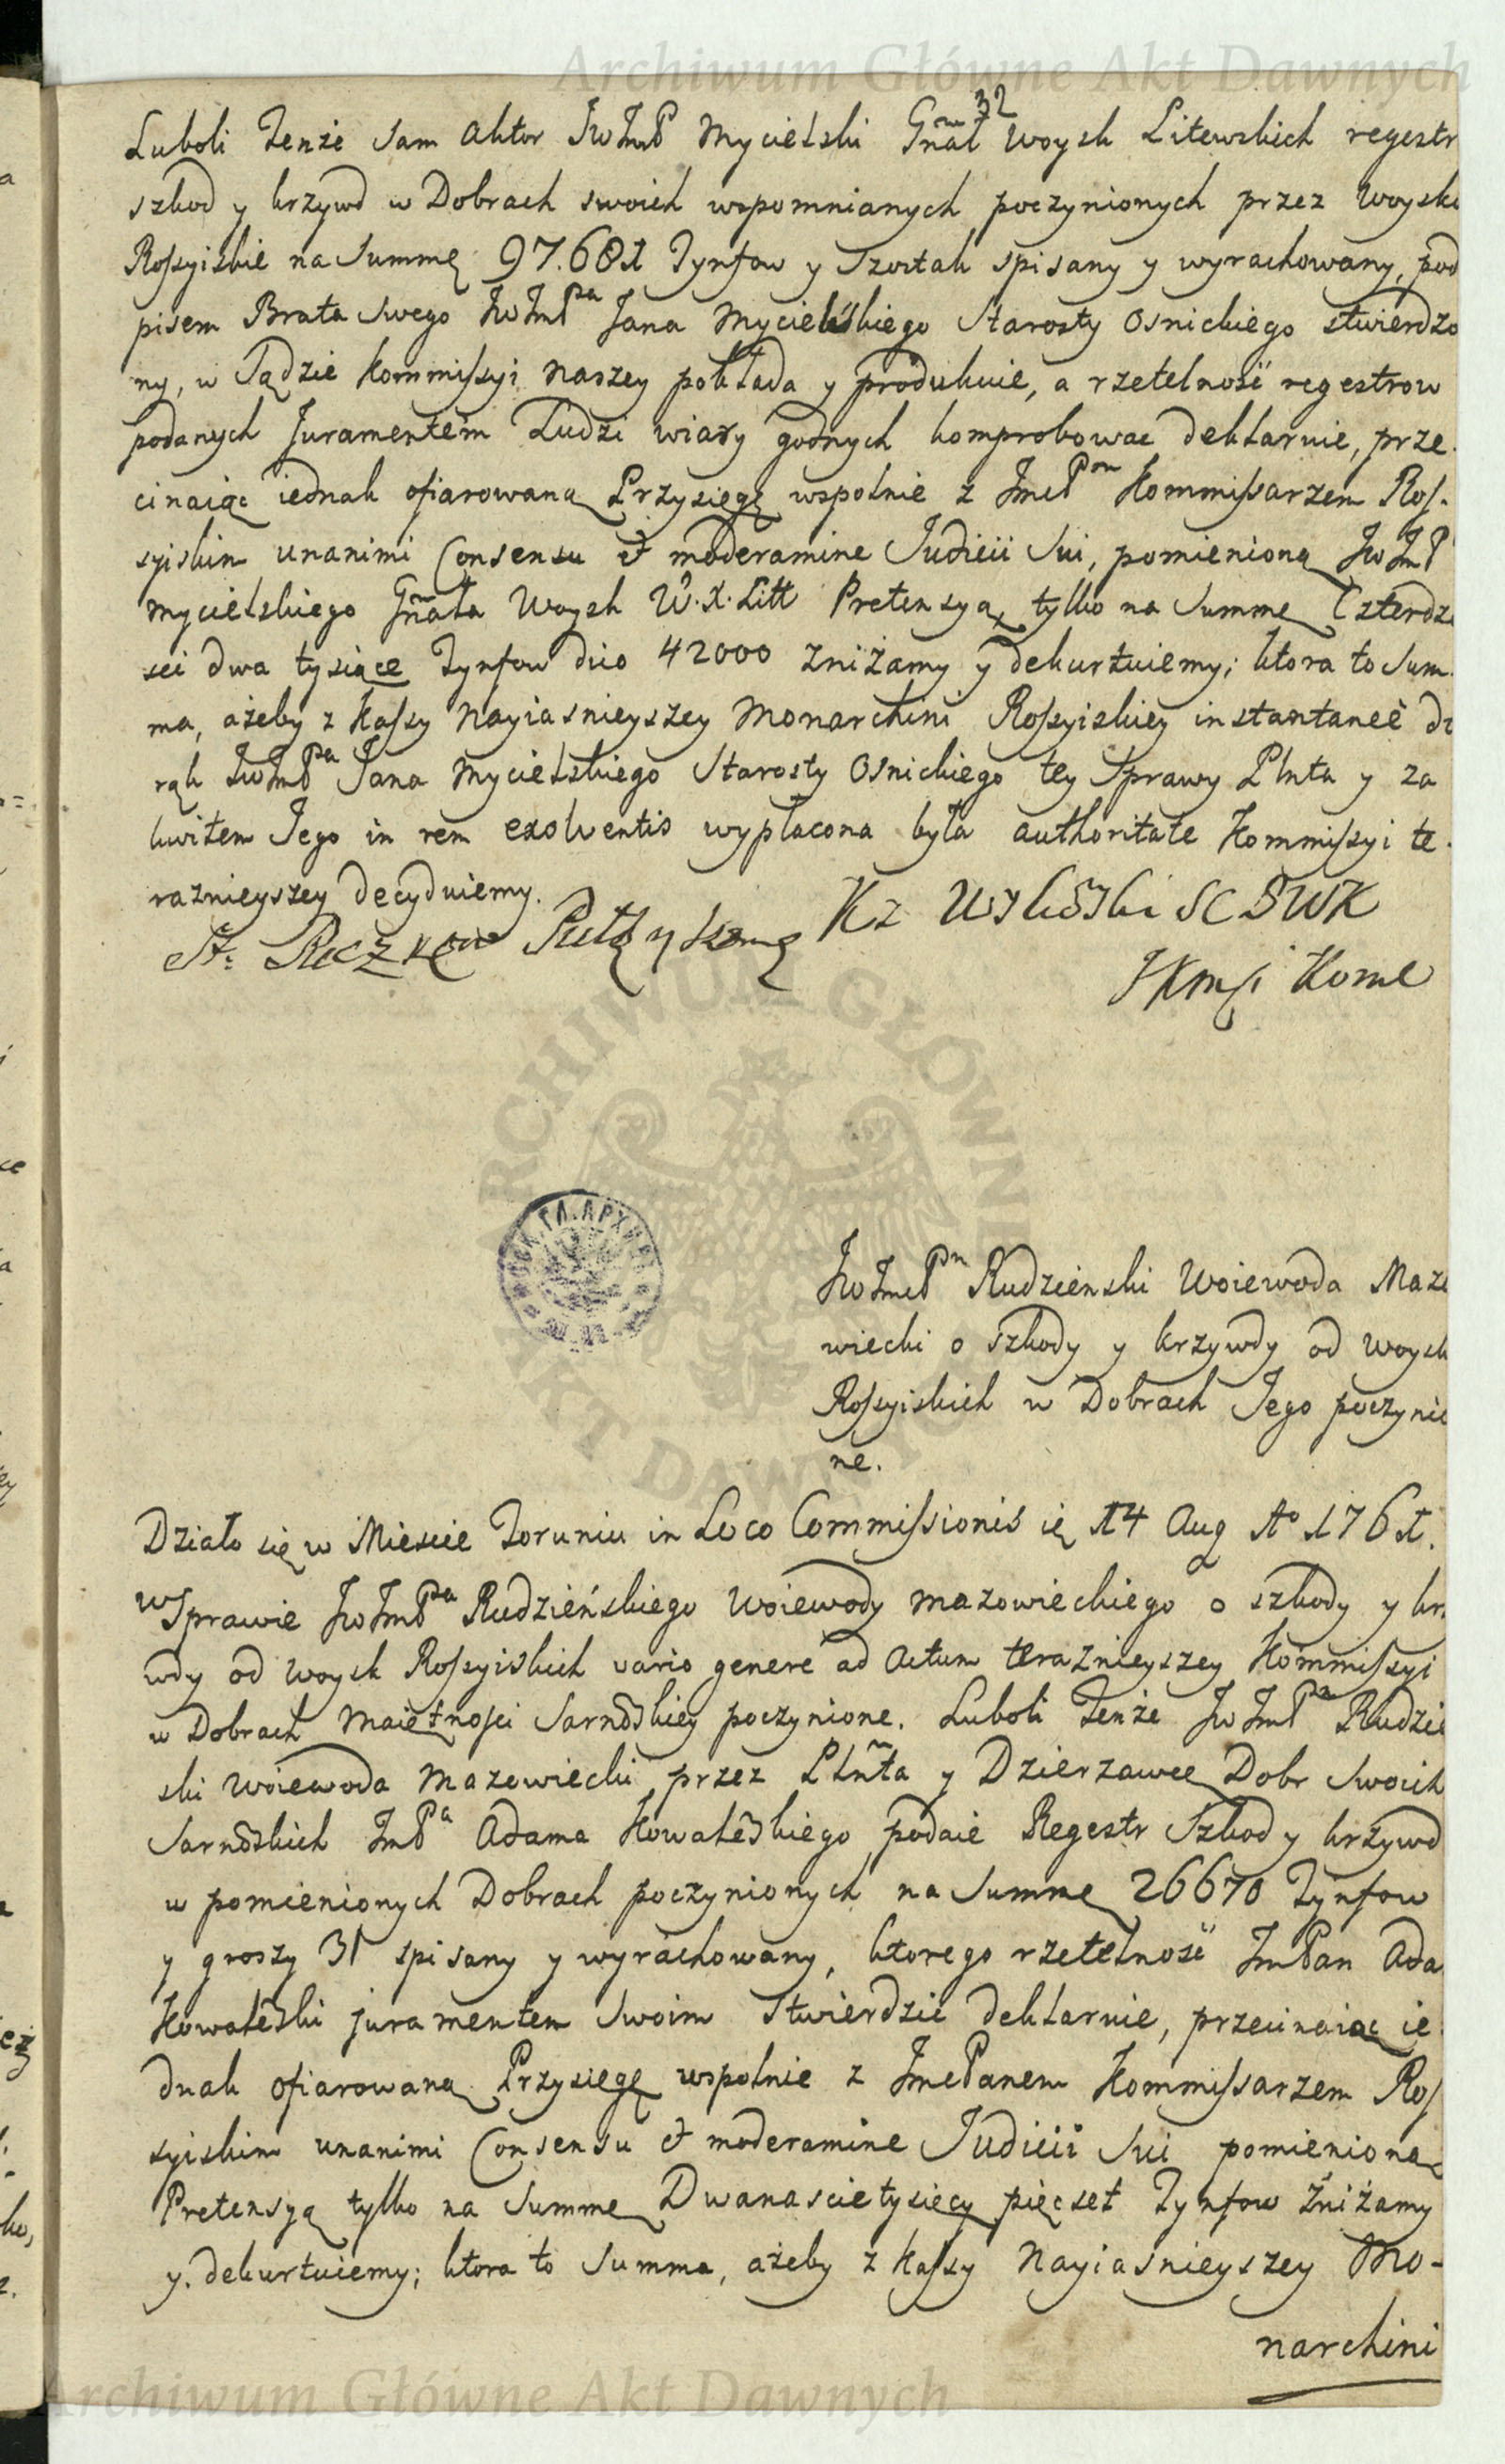 Archiwum Główne Akt Dawnych
32
Luboli Tenże sam Aktor JwJmP Mycielski Gnał Woysk Litewskich regestr
szkod y krzywd w Dobrach swoich wspomnianych poczynionych przez Woysko
Rossyiskie na Summę 97.681 Tynfow y Szostak spisany y wyrachowany, pod
pisem Brata Swego JwJmPna Jana Mycielskiego Starosty Osnickiego stwierdzo
ny, w Sądzie Kommissyi naszey pokłada y produkuie, a rzetelność regestrow
podanych Juramentem Ludzi wiary godnych komprobować deklaruie, prze
cinaiąc iednak ofiarowaną Przysięgę wspolnie z JmcPm Kommissarzem Ros-
syiskim unanimi Consensu et moderamine Judicii Sui, pomienioną JwJmP
Mycielskiego Gnała Woysk W.X.Litt Pretensyą, tylko na Summę Czterdzie
sci dwa tysiące Tynfow dico 42000 zniżamy y dekurtuiemy; ktora to Sum-
ma, ażeby z Kassy Nayiasnieyszey Monarchini Rossyiskiey instantaneè do
rąk JwJmPa Jana Mycielskiego Starosty Osnickiego tey Sprawy Plnta y za
kwitem Jego in rem exolventis wypłacona była authoritate Kommissyi te-
raznieyszey decyduiemy.
JKmsi Kome
JwJmcPn Rudzienski Woiewoda Mazo
wiecki o szkody y krzywdy od Woysk
Rossyiskich w Dobrach Jego poczynio
ne.
Działo się w Miescie Toruniu in Loco Commissionis ię 14 Aug Ao 1761.
W Sprawie JwJmPa Rudzieńskiego Woiewody Mazowieckiego o szkody y krzy
wdy od Woysk Rossyiskich vario genere ad Actum teraznieyszey Kommissyi
w Dobrach Maiętnosci Sarnoskiey poczynione. Luboli Tenże JwJmPn Rudzie
ski Woiewoda Mazowiecki przez Plnta y Dzierzawcę Dobr Swoich
Sarnoskich JmPa Adama Kowaleskiego podaie Regestr Szkod y krzywd
w pomienionych Dobrach poczynionych na Summę 26670 Tynfow
y groszy 31 spisany y wyrachowany, ktorego rzetelność JmPan Ada
Kowaleski juramentem Swoim stwierdzić deklaruie, przecinaiąc ie
dnak ofiarowaną Przysięgę wspolnie z JmcPanem Kommissarzem Ros
syiskim unanimi Consensu et moderamine Judicii Sui pomienioną
Pretensyą tylko na Summę Dwanascie tysięcy pięćset Tynfow Zniżamy
y dekurtuiemy; ktora to Summa, ażeby z Kassy Nayiasnieyszey Mo-
narchini
Archiwum Główne Akt Dawnych